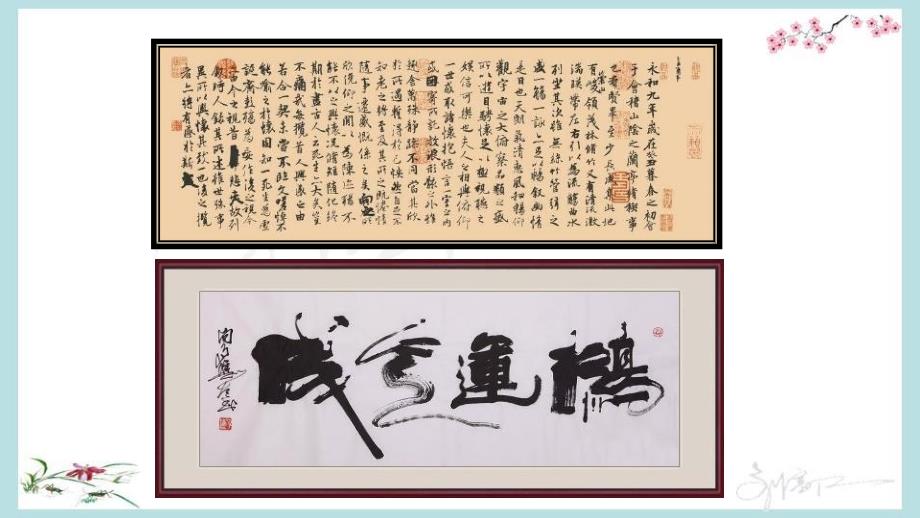 永和九年歲在癸丑暮春之初會
于會稽山陰之蘭亭脩稧事
也群賢畢至少長咸集此地
有崇山峻領茂林脩竹又有清流激
湍暎帶左右引以為流觴曲水
列坐其次雖無絲竹管弦之
盛一觴一詠亦足以暢敘幽情
是日也天朗氣清惠風和暢仰
觀宇宙之大俯察品類之盛
所以遊目騁懷足以極視聽之
娛信可樂也夫人之相與俯仰
一世或取諸懷抱悟言一室之內
或因寄所託放浪形骸之外雖
趣舍萬殊靜躁不同當其欣
於所遇蹔得於己怏然自足不
知老之將至及其所之既惓情
隨事遷感慨係之矣向之所
欣俛仰之間以為陳迹猶不
能不以之興懷況脩短隨化終
期於盡古人云死生亦大矣豈
不痛哉每攬昔人興感之由
若合一契未嘗不臨文嗟悼不
能喻之於懷固知一死生為虛
誕齊彭殤為妄作後之視今
亦由今之視昔悲夫故列
敘時人錄其所述雖世殊事
異所以興懷其致一也後之攬
者亦將有感於斯
鴻運天成